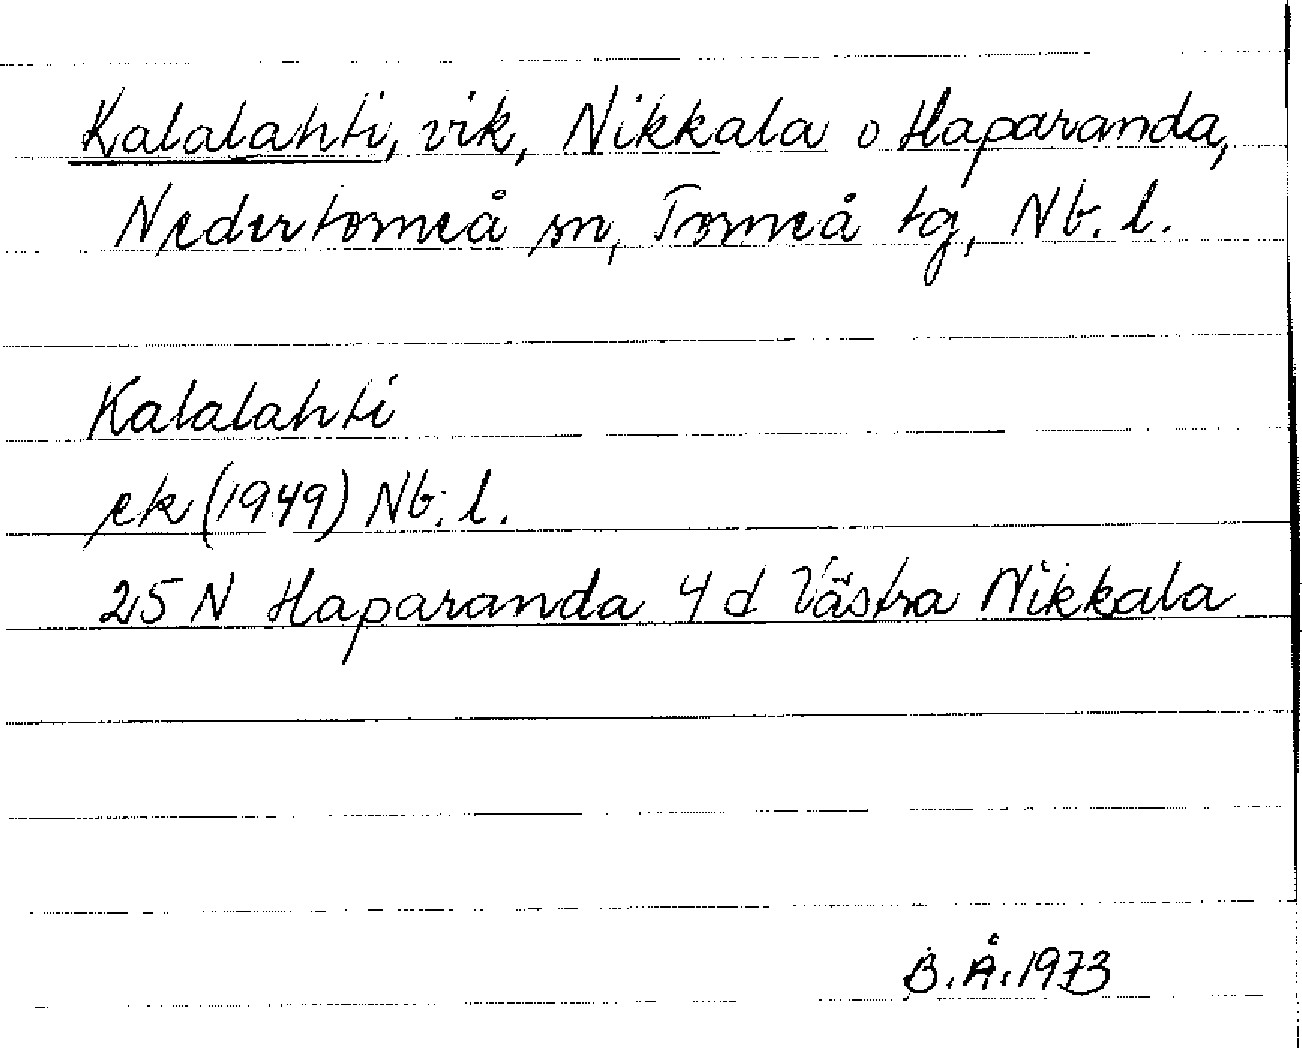 Kalalahti, vik, Nikkala o Haparanda,
Nedertorneå sn, Torneå tg, Nb. l.
Kalalahti
ek (1949) Nb. l.
25 N Haparanda 4 d Västra Nikkala
B. Å. 1973